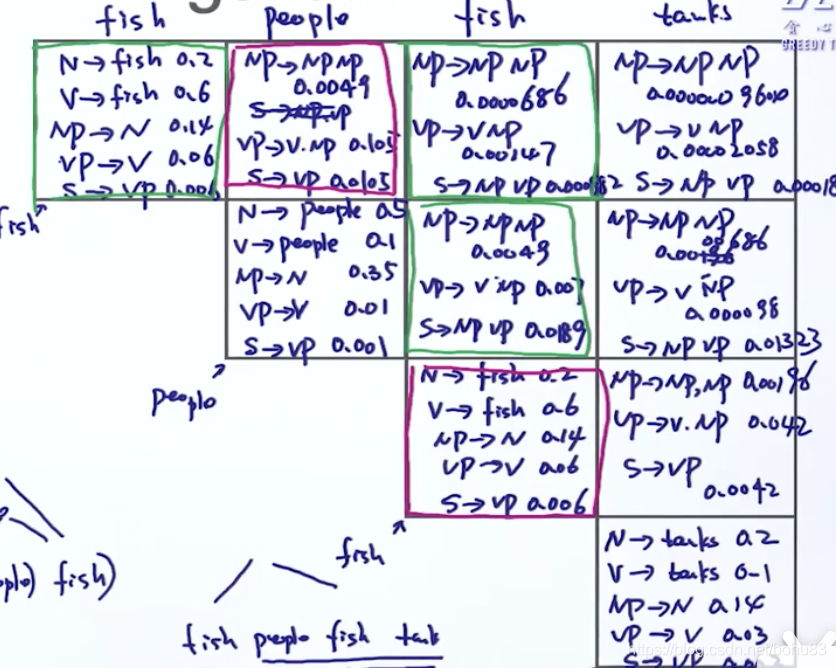 fish people fish tanks
GREEDY
N→fish 0.2
V→fish 0.6
NP→N 0.14
VP→V 0.06
S→VP 0.006
NP→NP NP
0.0049
VP→V.NP 0.105
S→VP 0.0105
NP→NP NP
0.0000686
VP→V NP
0.00147
S→NP VP
NP→NP NP
VP→V NP
0.00002058
S→NP VP 0.00018
fish
N→people 0.5
V→people 0.1
NP→N 0.35
VP→V 0.01
S→VP 0.001
NP→NP NP
0.0049
VP→V NP 0.007
S→NP VP 0.0189
NP→NP NP
VP→V NP
0.000098
S→NP VP 0.01323
people
N→fish 0.2
V→fish 0.6
NP→N 0.14
VP→V 0.06
S→VP 0.006
NP→NP,NP 0.00196
VP→V.NP 0.042
S→VP
0.0042
fish
N→tanks 0.2
V→tanks 0.1
NP→N 0.14
VP→V 0.03
S→VP
ople) fish)
fish people fish tank
https://blog.csdn.net/bohu83